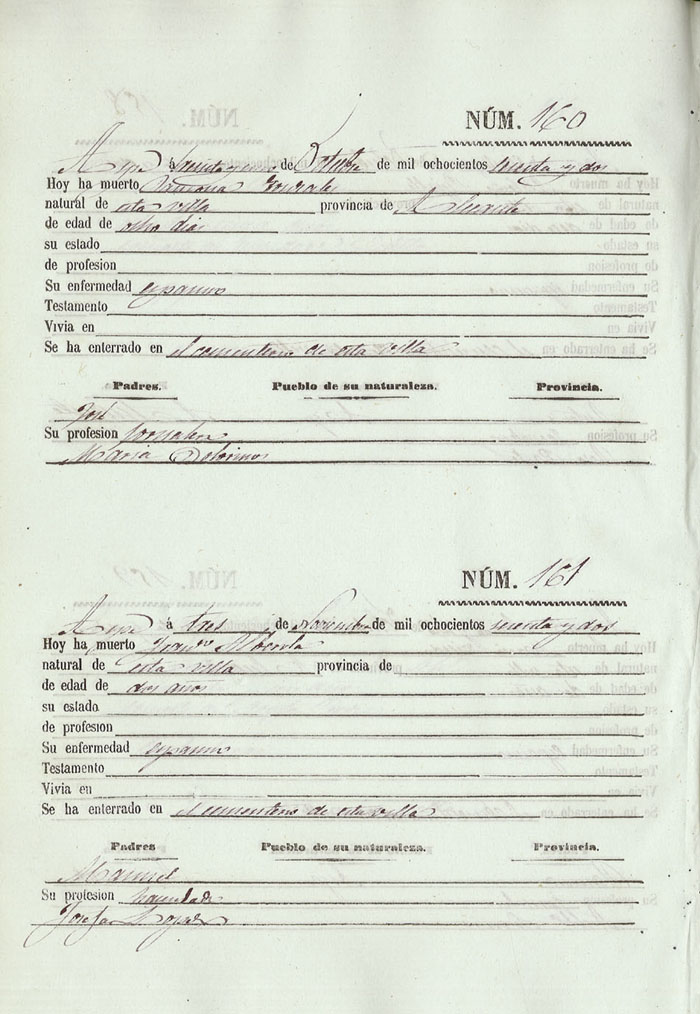 NÚM. 160
Aspe á treinta y uno de Octubre de mil ochocientos sesenta y dos
Hoy ha muerto Gonzales
natural de esta villa provincia de Alicante
de edad de ocho dias
su estado
de profesion
Su enfermedad espasmo
Testamento
Vivia en
Se ha enterrado en el cementerio de esta villa
Padres. Pueblo de su naturaleza. Provincia.
José
Su profesion jornalero
Maria
NÚM. 161
Aspe á tres de Noviembre de mil ochocientos sesenta y dos
Hoy ha muerto Fran.co
natural de esta villa provincia de
de edad de dos años
su estado
de profesion
Su enfermedad espasmo
Testamento
Vivia en
Se ha enterrado en el cementerio de esta villa
Padres Pueblo de su naturaleza. Provincia.
Manuel
Su profesion hacendado
Josefa